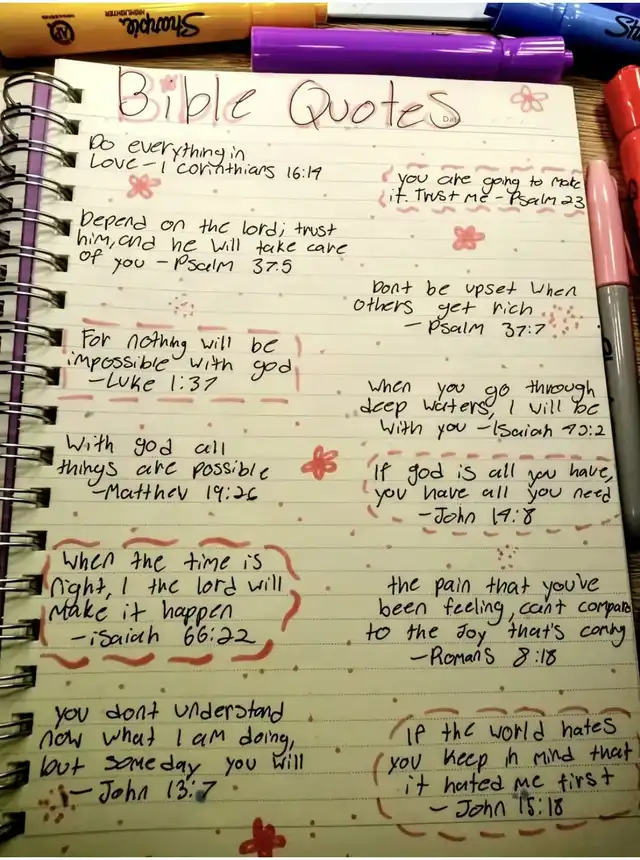 Sharpie
HIGHLIGHTER
AP
Bible Quotes
Do everything in
Love - 1 Corinthians 16:14
you are going to make
it. Trust me - Psalm 23
Depend on the lord; trust
him, and he will take care
of you - Psalm 37:5
Dont be upset when
others get rich
- Psalm 37:7
For nothing will be
impossible with god
- Luke 1:37
when you go through
deep waters, I will be
with you - Isaiah 43:2
With god all
things are possible
- Matthew 19:26
If god is all you have,
you have all you need
- John 14:8
When the time is
right, I the lord will
Make it happen
- isaiah 66:22
the pain that you've
been feeling, can't compare
to the Joy that's coming
- Romans 8:18
you dont understand
now what I am doing,
but someday you will
- John 13:7
If the world hates
you keep in mind that
it hated me first
- John 15:18